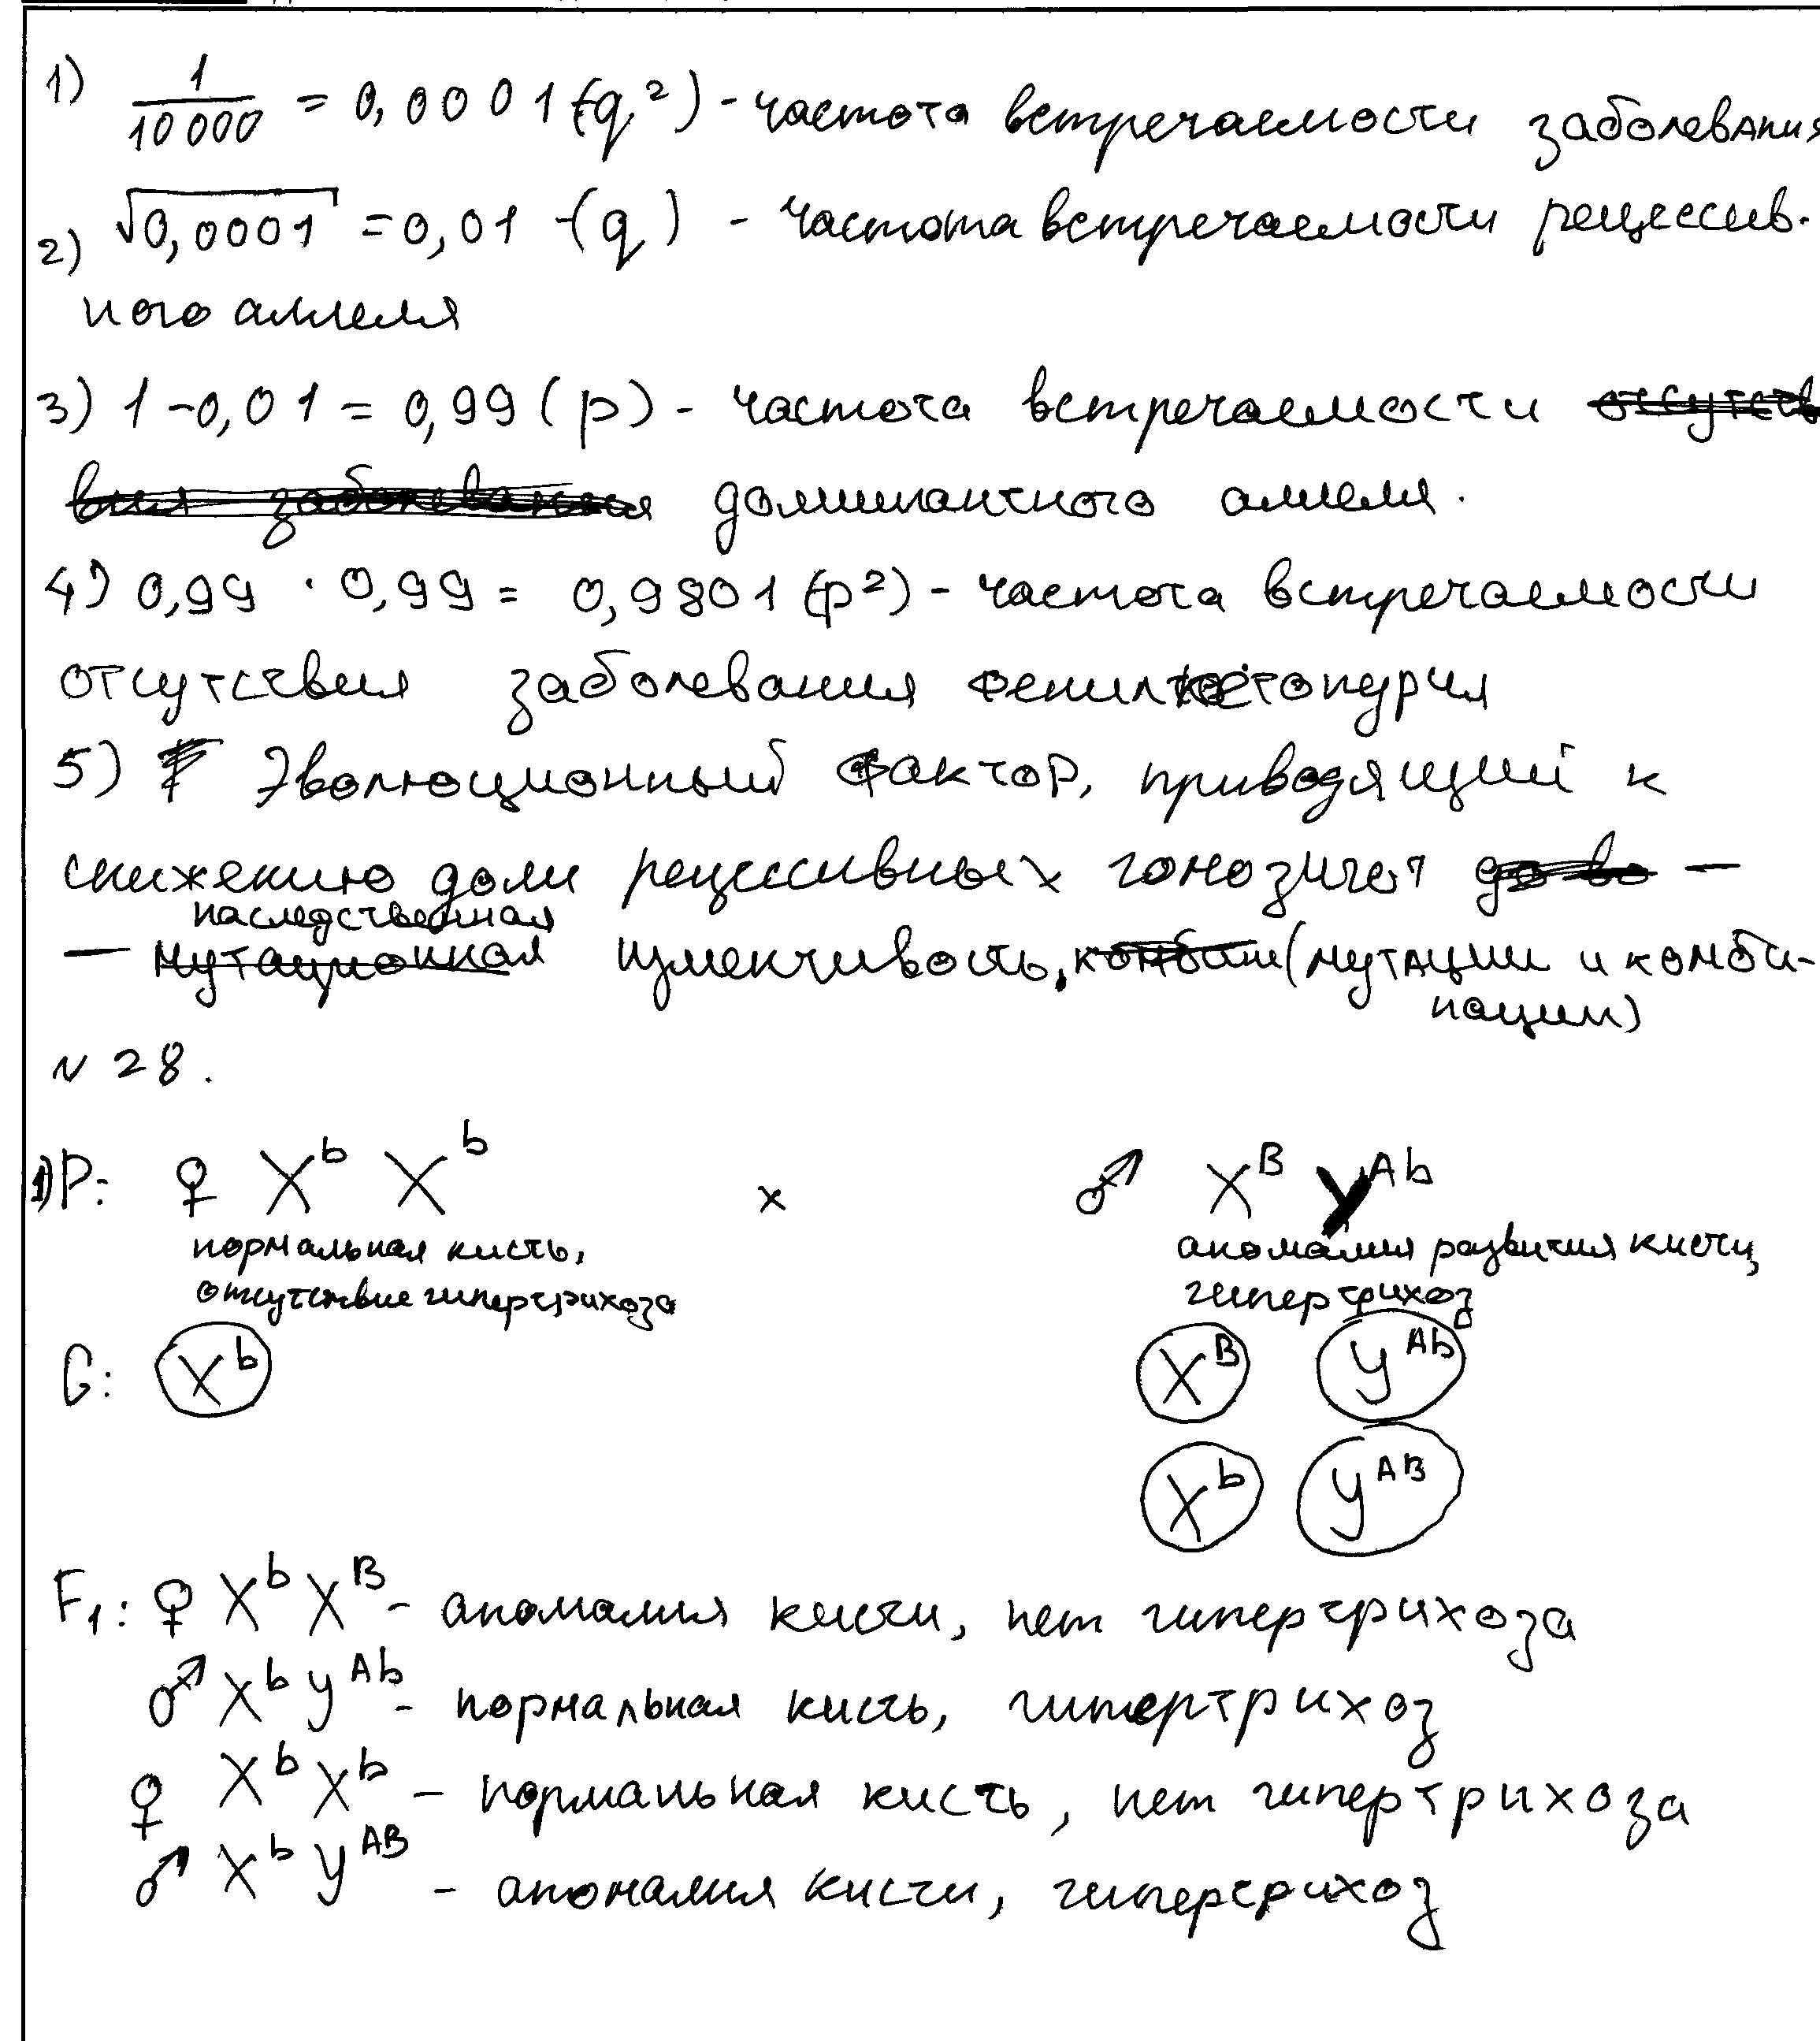 1) 1/10 000 = 0,0001 (q²) - частота встречаемости заболевания
2) √0,0001 = 0,01 - (q) - частота встречаемости рецессив-
ного аллеля
3) 1 - 0,01 = 0,99 (p) - частота встречаемости отсутст
вия заболевания доминантного аллеля.
4) 0,99 · 0,99 = 0,9801 (p²) - частота встречаемости
отсутствия заболевания фенилкетонурия
5) Эволюционный фактор, приводящий к
снижению доли рецессивных гомозигот до во —
наследственная
— мутационная изменчивость, комбин (мутации и комби-
нации)
N 28.
1) P: ♀ Xᵇ Xᵇ x ♂ Xᴮ Yᴬᵇ
нормальная кисть, аномалия развития кисти,
отсутствие гипертрихоза гипертрихоз
G: Xᵇ Xᴮ Yᴬᵇ
Xᵇ Yᴬᴮ
F₁: ♀ Xᵇ Xᴮ - аномалия кисти, нет гипертрихоза
♂ Xᵇ Yᴬᵇ - нормальная кисть, гипертрихоз
♀ Xᵇ Xᵇ - нормальная кисть, нет гипертрихоза
♂ Xᵇ Yᴬᴮ - аномалия кисти, гипертрихоз